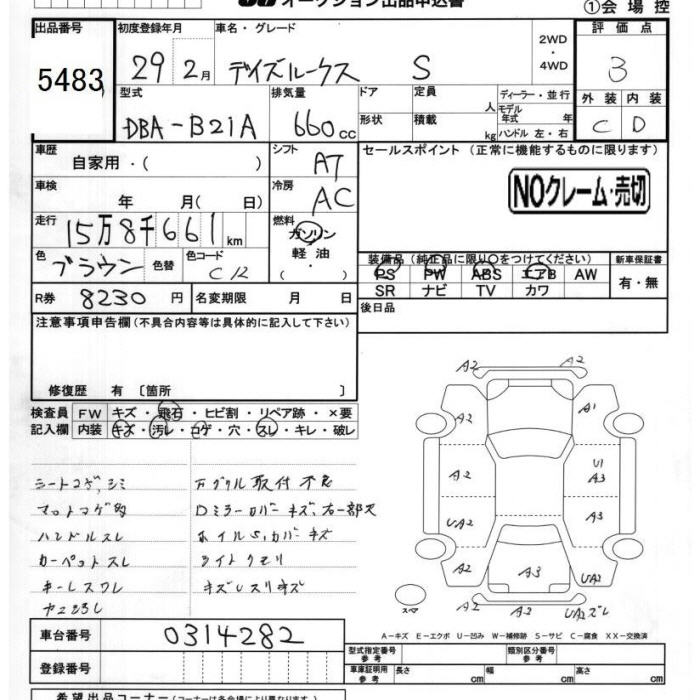 オークション出品申込書
①会場控
出品番号
5483
初度登録年月
29 2月
車名・グレード
デイズルークス S
2WD
・
4WD
評価点
3
外装 内装
C D
型式
DBA-B21A
排気量
660cc
ドア
形状
定員 人
積載 kg
ディーラー・並行
モデル年式 年
ハンドル 左・右
車歴
自家用・( )
シフト
AT
車検
年 月( 日)
冷房
AC
走行
15万8千661km
燃料
ガソリン
軽油
( ・ )
色
ブラウン
色替
色コード
C12
R券 8230円
名変期限 月 日
セールスポイント (正常に機能するものに限ります)
NOクレーム・売切
装備品(純正品に限り○をつけてください)
PS PW ABS エアB AW
SR ナビ TV カワ
新車保証書
有・無
後日品
注意事項申告欄(不具合内容等は具体的に記入して下さい)
修復歴 有〔箇所 〕
検査員記入欄
FW キズ・飛石・ヒビ割・リペア跡・×要
内装 キズ・汚レ・コゲ・穴・スレ・キレ・破レ
シートコゲ,シミ
マットコゲ
ハンドルスレ
カーペットスレ
キーレスワレ
取付不良
Dミラーカバーキズ,右一部欠
ホイルS,カバーキズ
ライトクモリ
A2 A2
A2 A1
A2 U1
A3
UA2 A3
A2 A3 UA2
A2 A2 UA2ズレ
スペア
A-キズ E-エクボ U-凹み W-補修跡 S-サビ C-腐食 XX-交換済
車台番号 0314282
登録番号
型式指定番号
参考
類別区分番号
参考
車庫証明用
参考
長さ cm 幅 cm 高さ cm
希望出品コーナー